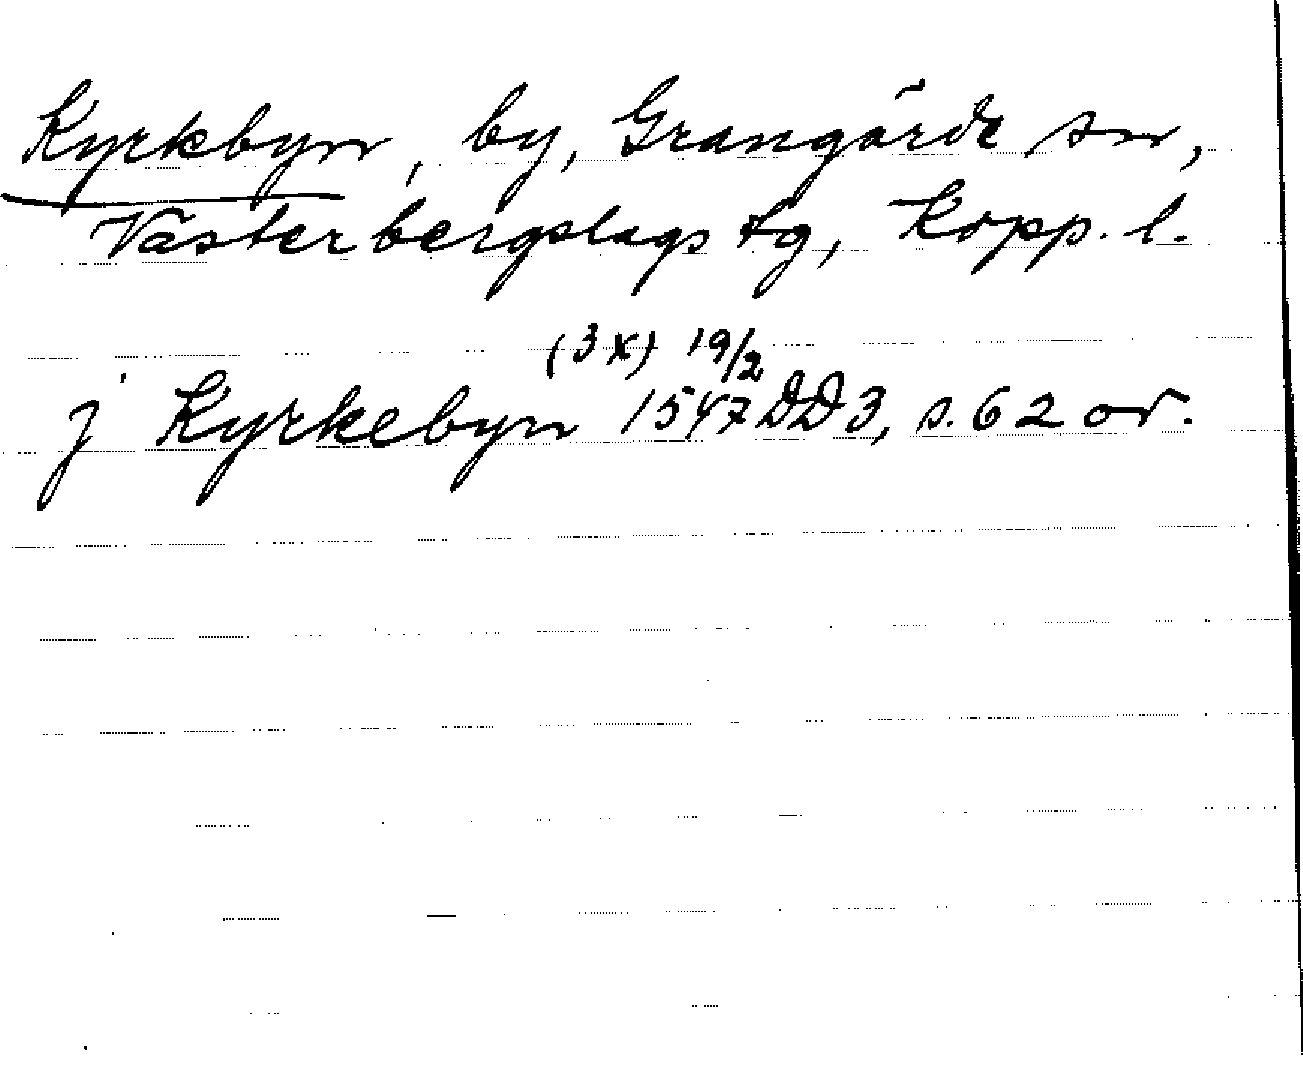 Kyrkbyn, by, Grangärde sn,
Västerbergslags tg, Kopp. l.
(3 x) 19/2
j Kyrkebyn 1547 DD3, s. 62 or.